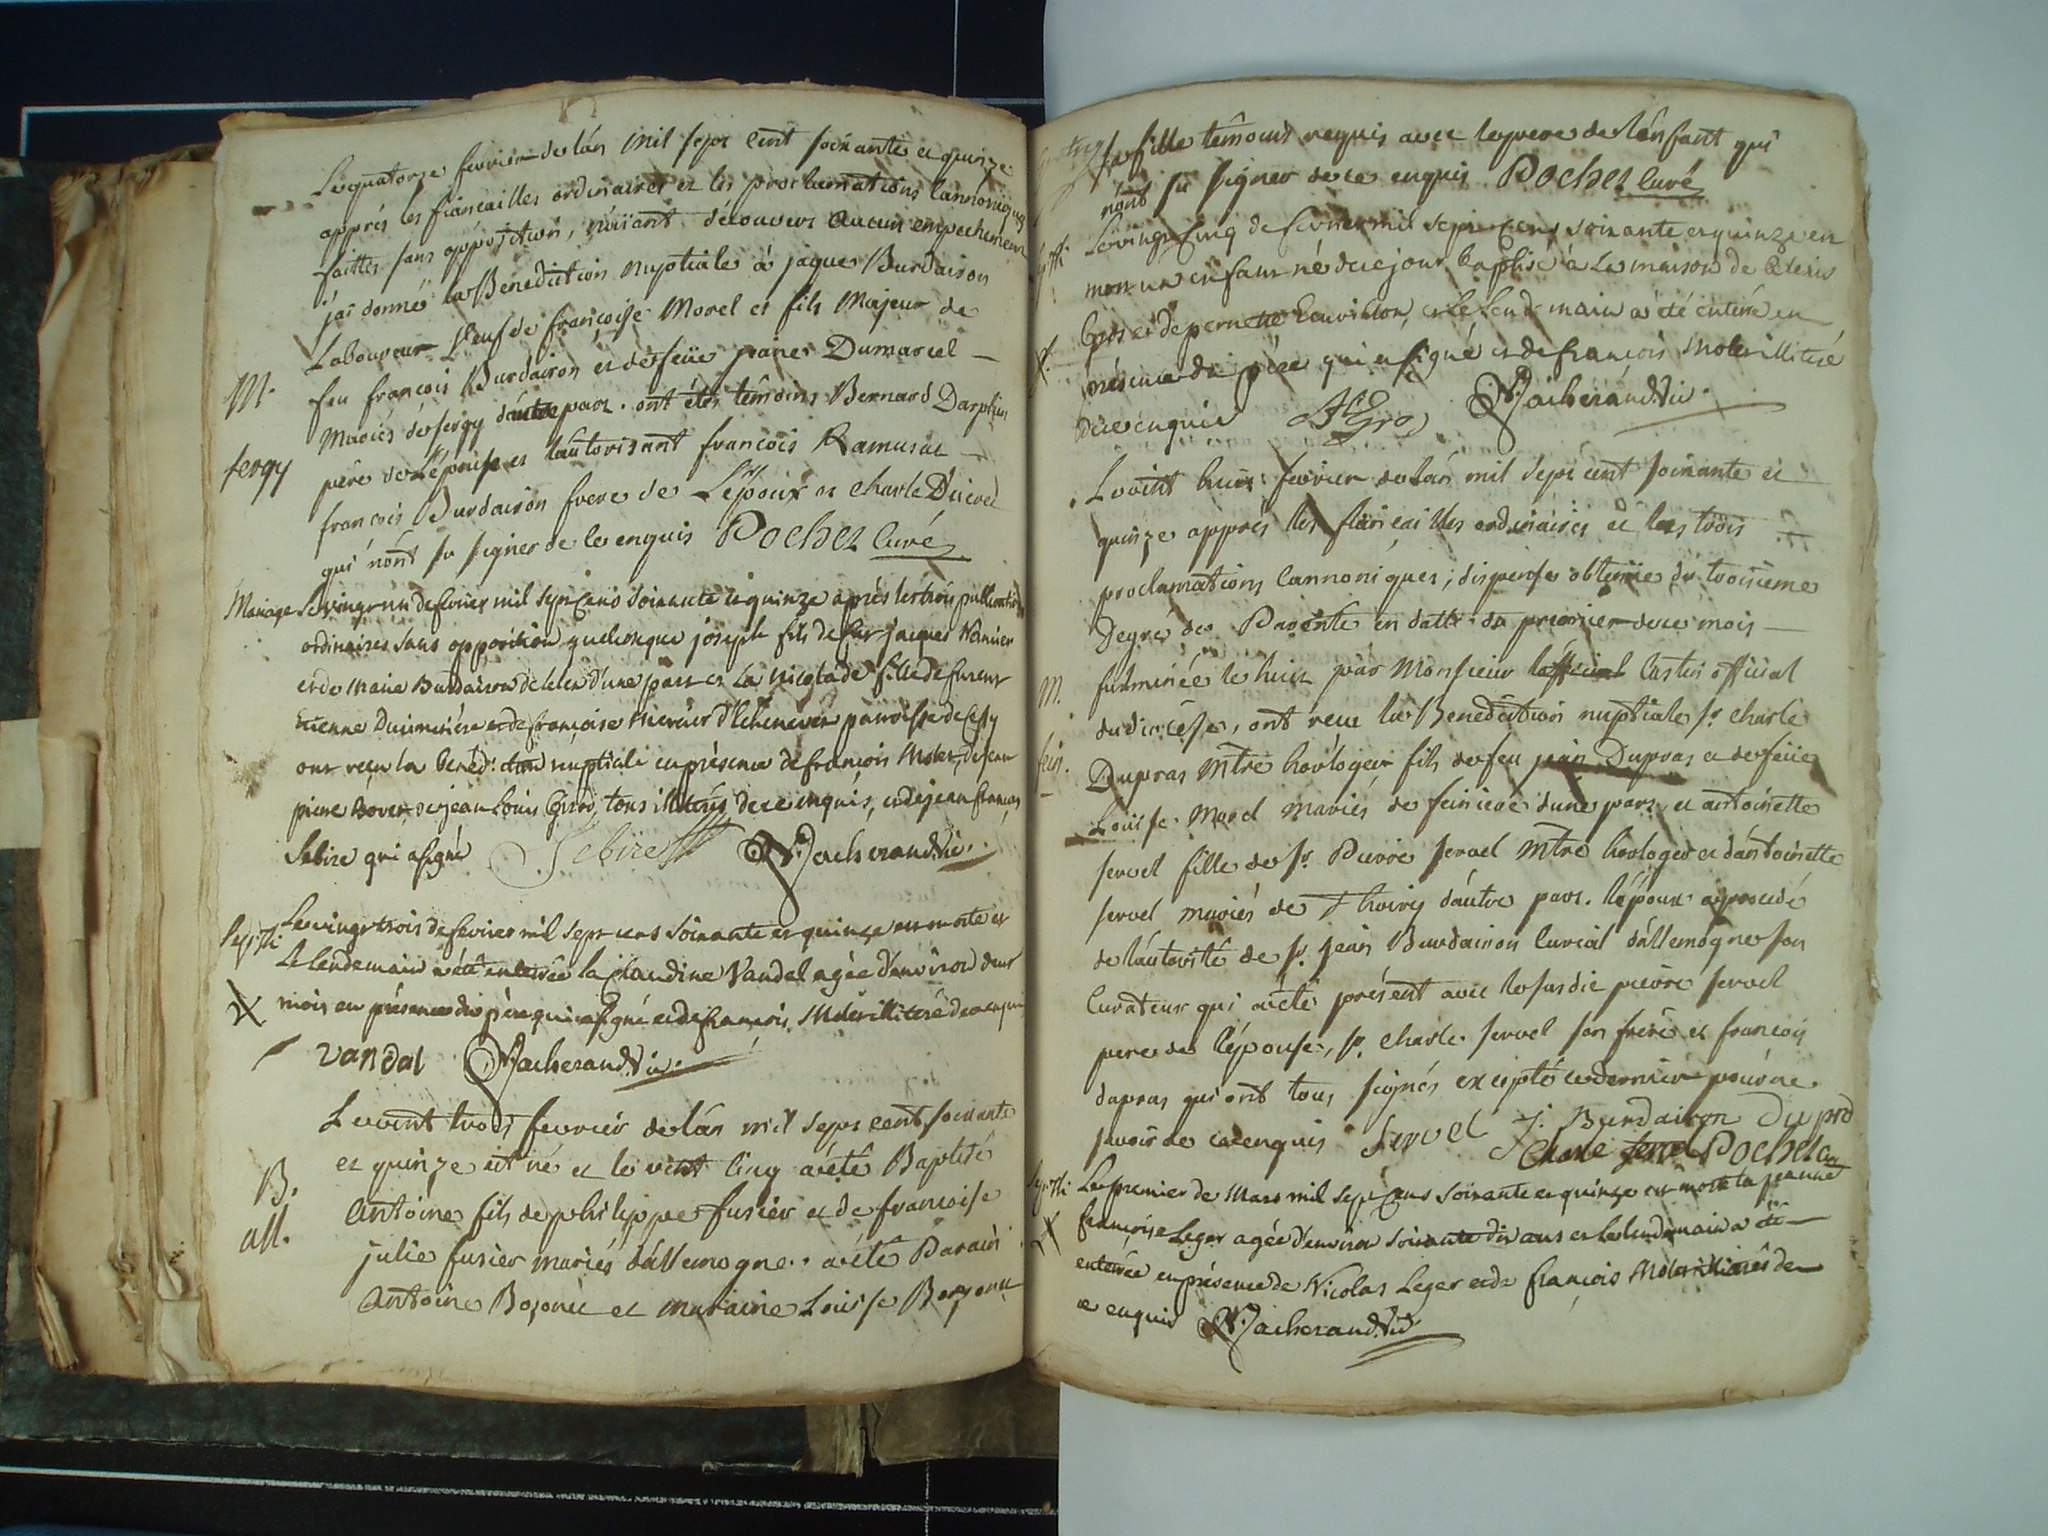 Le quatorze fevrier de lán mil sept cent soixante et quinze
apprés les fiancailles ordinaires et les proclamations Cannoniques
faittes sans opposition, náiant découvert aucun empechement
j'ai donné la Benediction nuptiale à jaque Burdairon
Laboureur Veuf de françoise Morel et fils Majeur de
M.
feu françois Burdairon et de feüe Dumarcel
Mariés de sergy dáutre part. ont étés témoins Bernard
sergy
père de Lépouse et láutorisant françois Ramusat
françois Burdairon frere de Lépoux et charle
qui nónt su signer de ce enquis Pochet Curé
Mariage
Le vingt un de fevrier mil sept cens soixante et quinze après les trois publications
ordinaires sans opposition quelconque joseph fils de feu jacques
et de Marie Burdairon de d'une part et La Nicolade fille de
etienne et de françoise Mercier d'Echenevex parroisse de Cessy
ont reçu la bened.ction nuptiale en présence de françois Molet, de jean
pierre de jean Louis Girod, tous illiterés de ce enquis, et de jean françois
Sebire qui a signé Sebire Macherand Vic.
Sepolt:
Le vingt trois de fevrier mil sept cens soixante et quinze est morte et
Le lendemain a été enterrée la Claudine Vandal agée d'environ deux
mois en présence du père qui a signé et de françois Molet illiteré de ce enquis
vandal Macherand Vic.
Le vint trois fevrier de lán mil sept cent soixante
et quinze est né et le vint cinq a été Baptisé
B.
Antoine fils de philippe fusier et de francoise
all.
julie fusier mariés dállemogne. a été Parain
Antoine Bozonet et maraine Louise Bozonet
sa fille témoins requis avec le pere de lénfant qui
nónt su signer de ce enquis Pochet Curé
Le vingt cinq de fevrier mil sept cens soixante et quinze est
mort un enfant né de ce jour baptisé à la maison de
Gros et de pernette et le lendemain a été enterré en
présence du père qui a signé et de françois Molet illiteré
de ce enquis Gros Macherand Vic.
Le vint huit fevrier de lán mil sept cent soixante et
quinze apprés les fiancailles ordinaires et les trois
proclamations Cannoniques; dispense obtenüe du troisieme
Degré de Parenté en datte du premier de ce mois
M.
fulminée le huit par Monsieur Castin official
du diocèse, ont recu la Benediction nuptiale sr. charle
Dupras Mtre horloger fils de feu jean Dupras et de feüe
Louise Morel mariés de d'une part et antoinette
servel fille de sr. Pierre servel Mtre horloger et dántoinette
servel mariés de Thoiry dáutre part. lépoux a procedé
de láutorité de sr. jean Burdairon Curial dállemogne son
Curateur qui a été présent avec le susdit pierre servel
pere de lépouse, sr. charle servel son frere et francois
dupras qui ont tous signés excepté ce dernier pour ne
savoir de ce enquis Servel J. Burdairon Duprá
Charle servel Pochet Cu
Sepolt
Le premier de Mars mil sept cens soixante et quinze est morte la jeanne
françoise Leger agée d'environ soixante dix ans et Le lendemain a été
enterrée en présence de Nicolas Leger et de françois Molet illiterés de
ce enquis Macherand Vic.